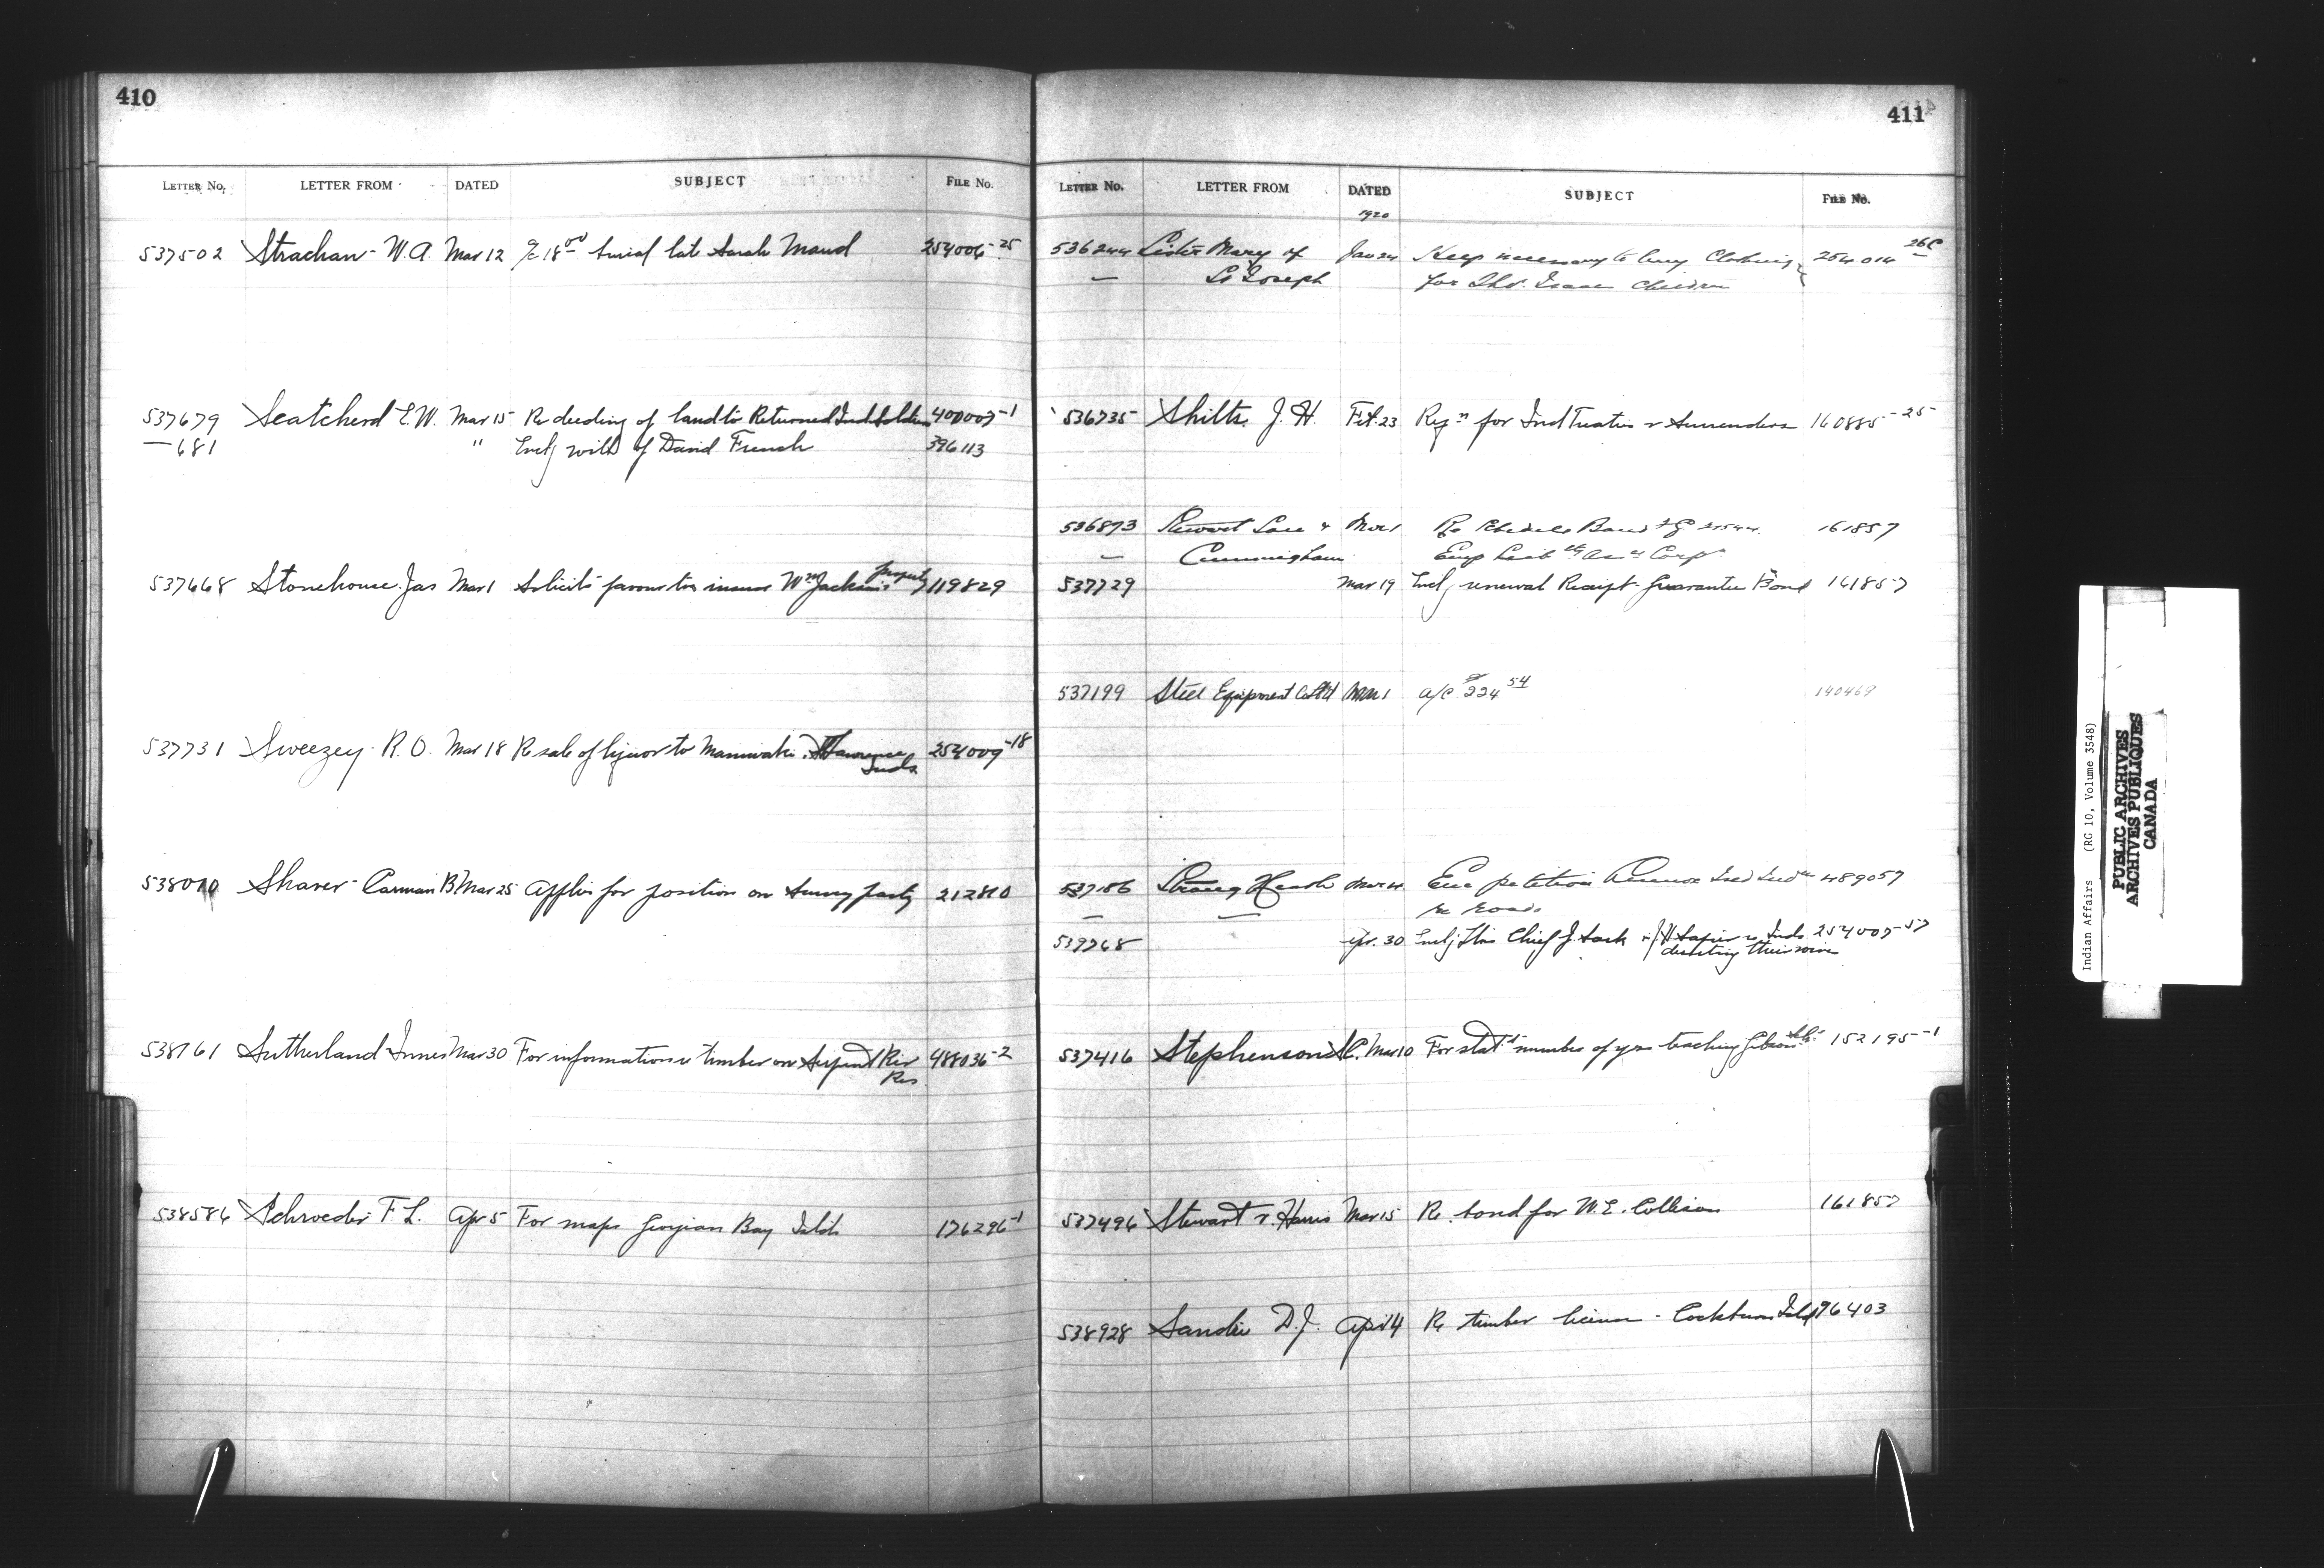 410
LETTER No. LETTER FROM DATED SUBJECT FILE No.
537502 Strachan - W. A. Mar 12 a/c 18 00 burial late Sarah Maud 254006-25
537679 Scatcherd E. W. Mar 15 Re deeding of land to Returned Ind. Soldiers 400007-1
— 681 " Encl will of David French 396113
property
537668 Stonehouse Jas Mar 1 Solicits favour to insure Wm Jackson's 119829
537731 Sweezey - R. O. Mar 18 Re sale of liquor to Maniwaki 254009-18
Inds.
538010 Shaver - Carman B. Mar 25 Applies for position on Survey party 212810
538161 Sutherland Innes Mar 30 For information re timber on Serpent Riv 488036-2
Res
538586 Schroeder F. L. Apr 5 For maps Georgian Bay Islds 176296-1
411
LETTER No. LETTER FROM DATED SUBJECT FILE No.
1920
536244 Sister Mary of Jan 24 necessary to buy Clothing 254014 26C
— St Joseph for Thos. Isaac Children
536735 Shilts, J. H. Feb. 23 Reqn for Ind Treaties & Surrenders 160885-25
536873 Stewart Law & Mar 1 Re Bond 161857
— Cunningham
537729 Mar 19 Encl renewal Receipt Guarantee Bond 161857
537199 Steel Equipment Co Ltd Mar 1 a/c $224 54 140469
537186 Strang Heath Mar 4 Enc petition 489057
— — re roads
539768 Apr. 30 Encl Chief J. 254007-57
deserting their wives
537416 Stephenson Mar 10 For statt number of yrs teaching Gibson 152195-1
537496 Stewart & Harris Mar 15 Re. bond for W. E. Collison 161857
538928 Sandie D. J. Apr 14 Re timber license - Cockburn Isld 196403
Indian Affairs (RG 10, Volume 3548)
PUBLIC ARCHIVES
ARCHIVES PUBLIQUES
CANADA